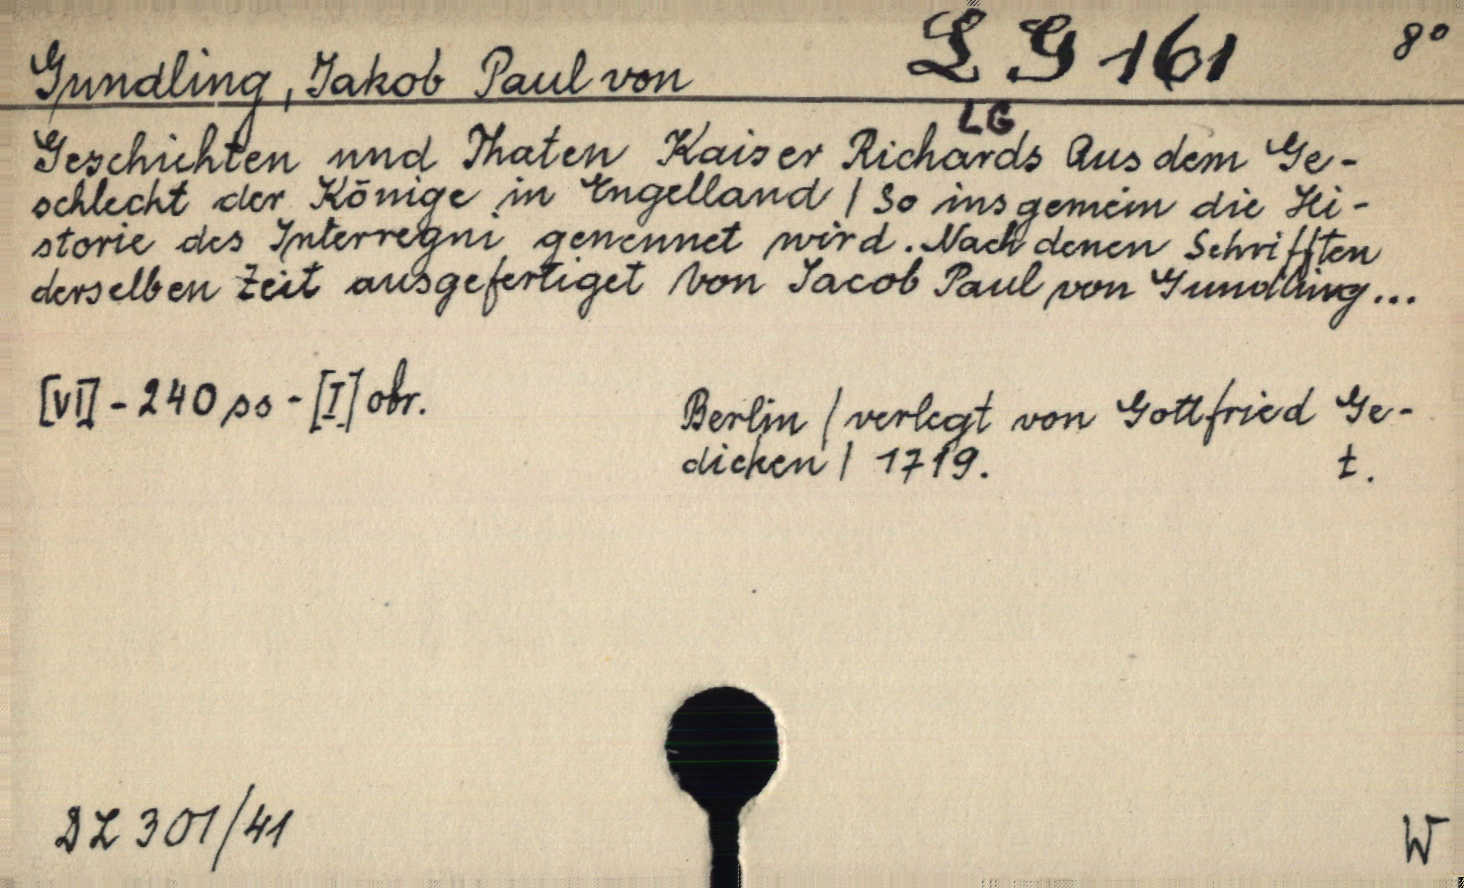 Gundling, Jakob Paul von LG 161 8°
LG
Geschichten und Thaten Kaiser Richards Aus dem Ge-
schlecht der Könige in Engelland / So ins gemein die Hi-
storie des Interregni genennet wird. Nach denen Schrifften
derselben Zeit ausgefertiget von Jacob Paul von Gundling...
[VI] - 240 ss - [I] obr.
Berlin / verlegt von Gottfried Ge-
dicken / 1719. t.
DL 301/41
W